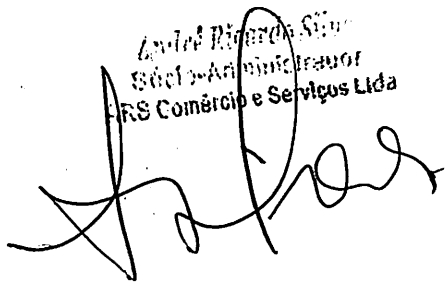 André Ricardo Silva
Sócio-Administrador
ARS Comércio e Serviços Ltda